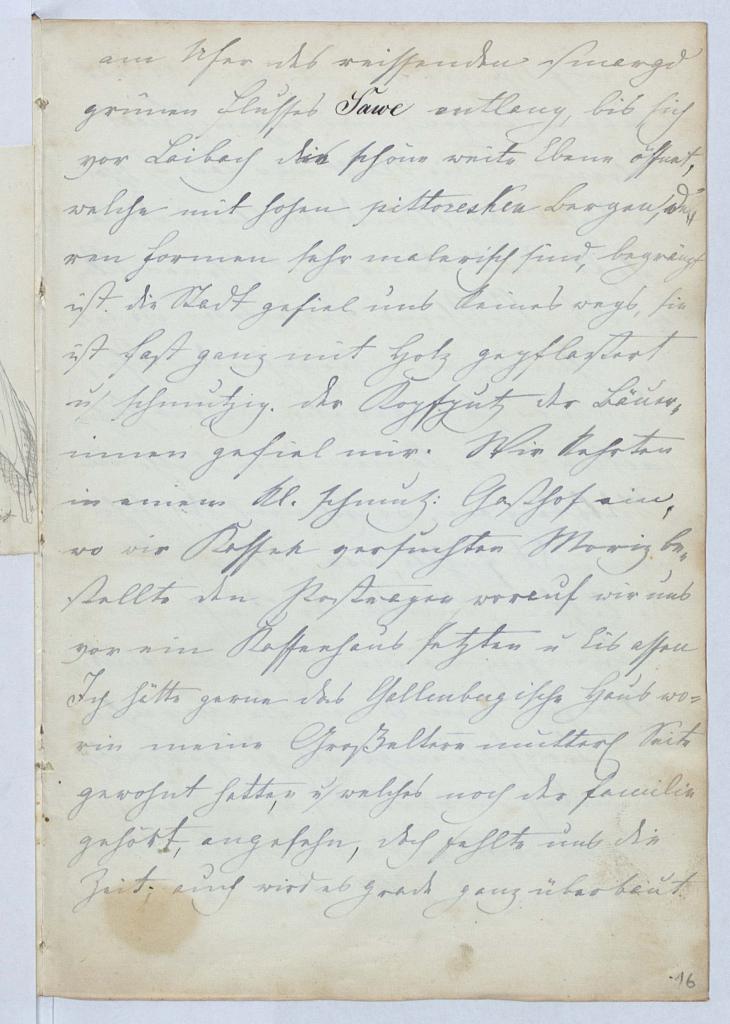 am Ufer des reissenden smaragd
grünen Flusses Sawe entlang, bis sich
vor Laibach die schöne weite Ebene öffnet,
welche mit hohen pittoresken Bergen, de„
ren Formen sehr malerisch sind, begränzt
ist. die Stadt gefiel uns keines wegs, sie
ist fast ganz mit Holz gepflastert
u schmutzig. der Kopfputz der Bäuer„
innen gefiel mir. Wir kehrten
in einem kl. schmutz: Gasthof ein,
wo wir Kaffeh versuchten Moriz be„
stellte den Postwagen worauf wir uns
vor ein Kaffeehaus setzten u Eis assen
Ich hätte gerne das Gallenbergische Haus wo=
rin meine Großeltern mutterl Seite
gewohnt hatten, u welches noch der Familie
gehört, angesehn, doch fehlte uns die
Zeit; auch wird es grade ganz überbaut.
16